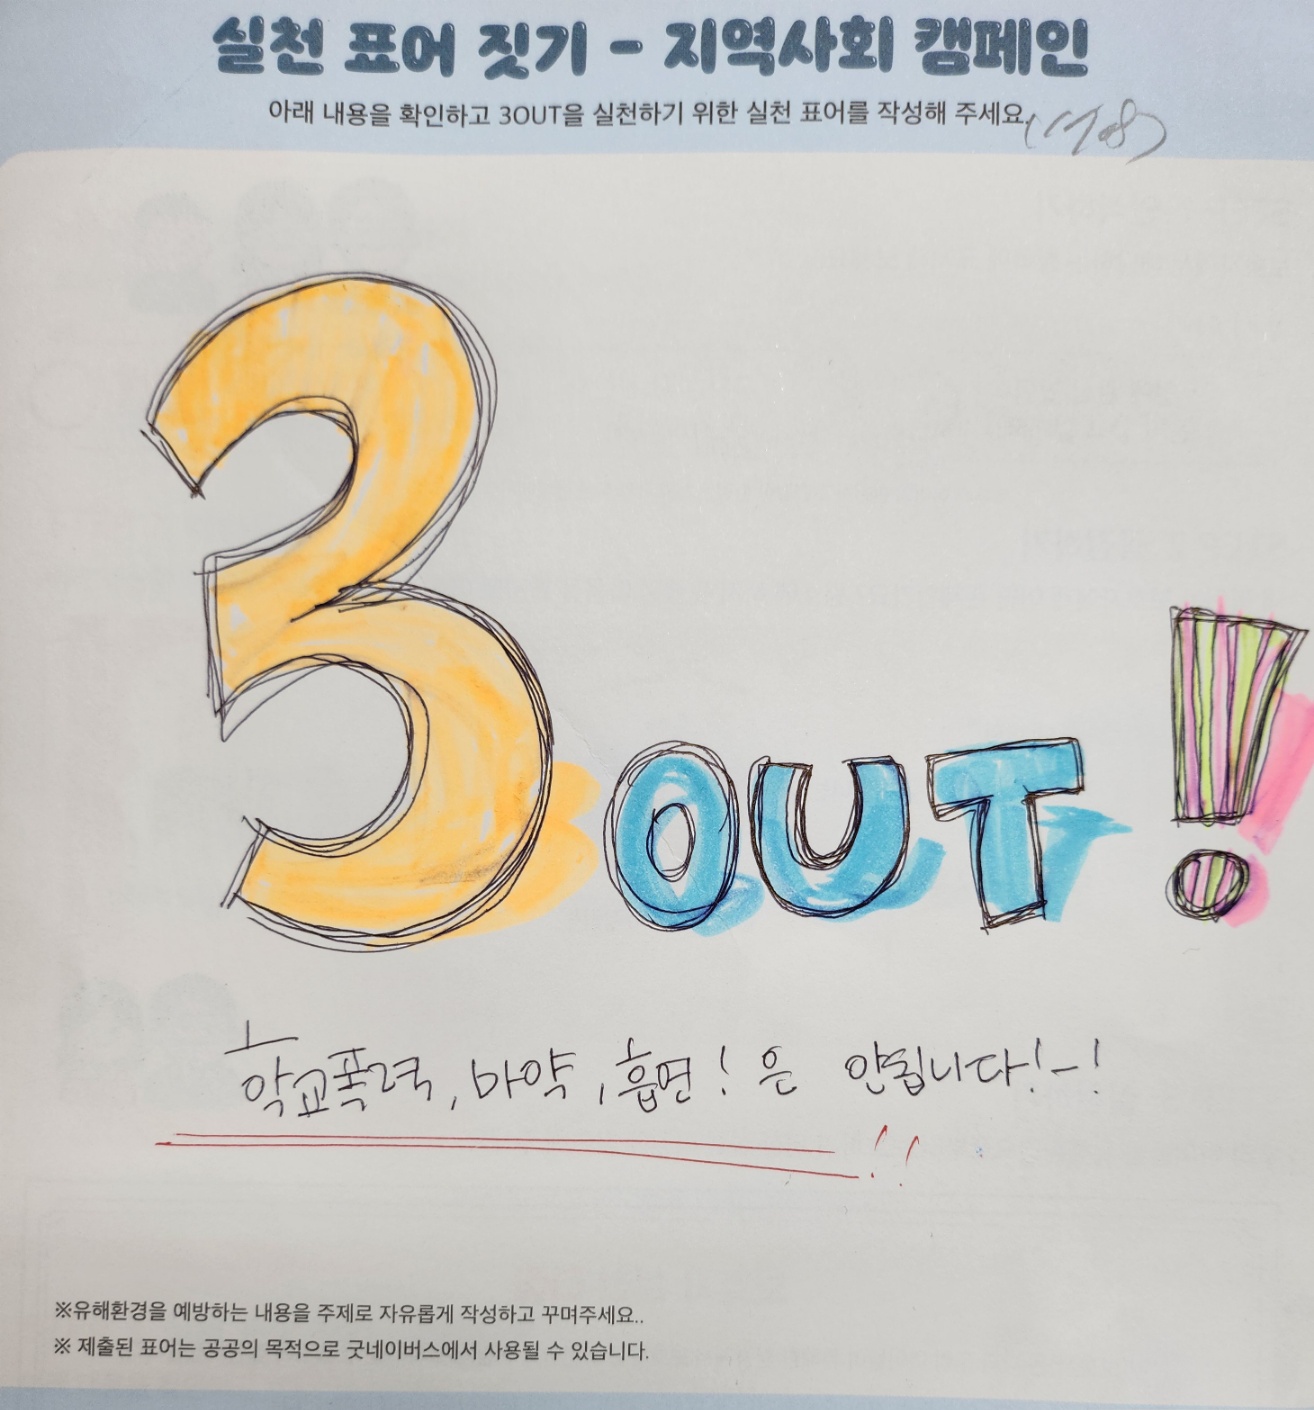 실천 표어 짓기 - 지역사회 캠페인
아래 내용을 확인하고 3OUT을 실천하기 위한 실천 표어를 작성해 주세요.
3OUT!
학교폭력, 마약, 흡연! 은 안됩니다!-!
!!
※유해환경을 예방하는 내용을 주제로 자유롭게 작성하고 꾸며주세요..
※ 제출된 표어는 공공의 목적으로 굿네이버스에서 사용될 수 있습니다.